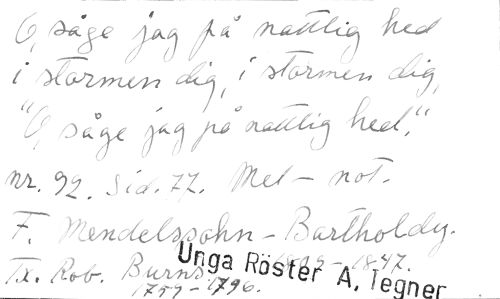 O, såge jag på nattlig hed
i stormen dig, i stormen dig,
"O, såge jag på nattlig hed."
nr. 92. Sid. 77. Mel - not.
F. Mendelssohn - Bartholdy.
1809 - 1847.
Tx. Rob. Burns
1759 - 1796.
Unga Röster A. Tegner